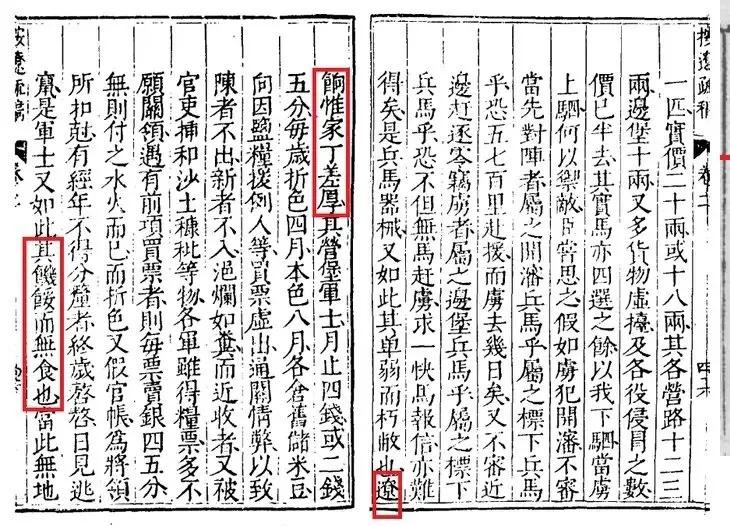 按遼疏稿 卷二
一匹實價二十兩或十八兩其各營路十二三
兩邊堡十兩又多貨物虛擡及各役侵冒之數
價已半去其實馬亦四選之餘以我下駟當虜
上駟何以禦敵臣嘗思之假如虜犯開瀋不審
當先對陣者屬之開瀋兵馬乎屬之標下兵馬
乎恐五七百里赴援而虜去幾日矣又不審近
邊赶逐零竊虜者屬之邊堡兵馬乎屬之標下
兵馬乎恐不但無馬赶虜求一快馬報信亦難
得矣是兵馬器械又如此其單弱而朽敝也遼
餉惟家丁差厚其營堡軍士月止四錢或二錢
五分每歲折色四月本色八月各倉舊儲米豆
向因鹽糧援例人等買票虛出通關情弊以致
陳者不出新者不入浥爛如糞而近收者又被
官吏捕和沙土糠粃等物各軍雖得糧票多不
願關領遇有前項買票者則每票賣銀四五分
無則付之水火而已而折色又假官帳為將領
所扣尅有經年不得分釐者終歲嗸嗸日見逃
竄是軍士又如此其饑餒而無食也當此無地
按遼疏稿